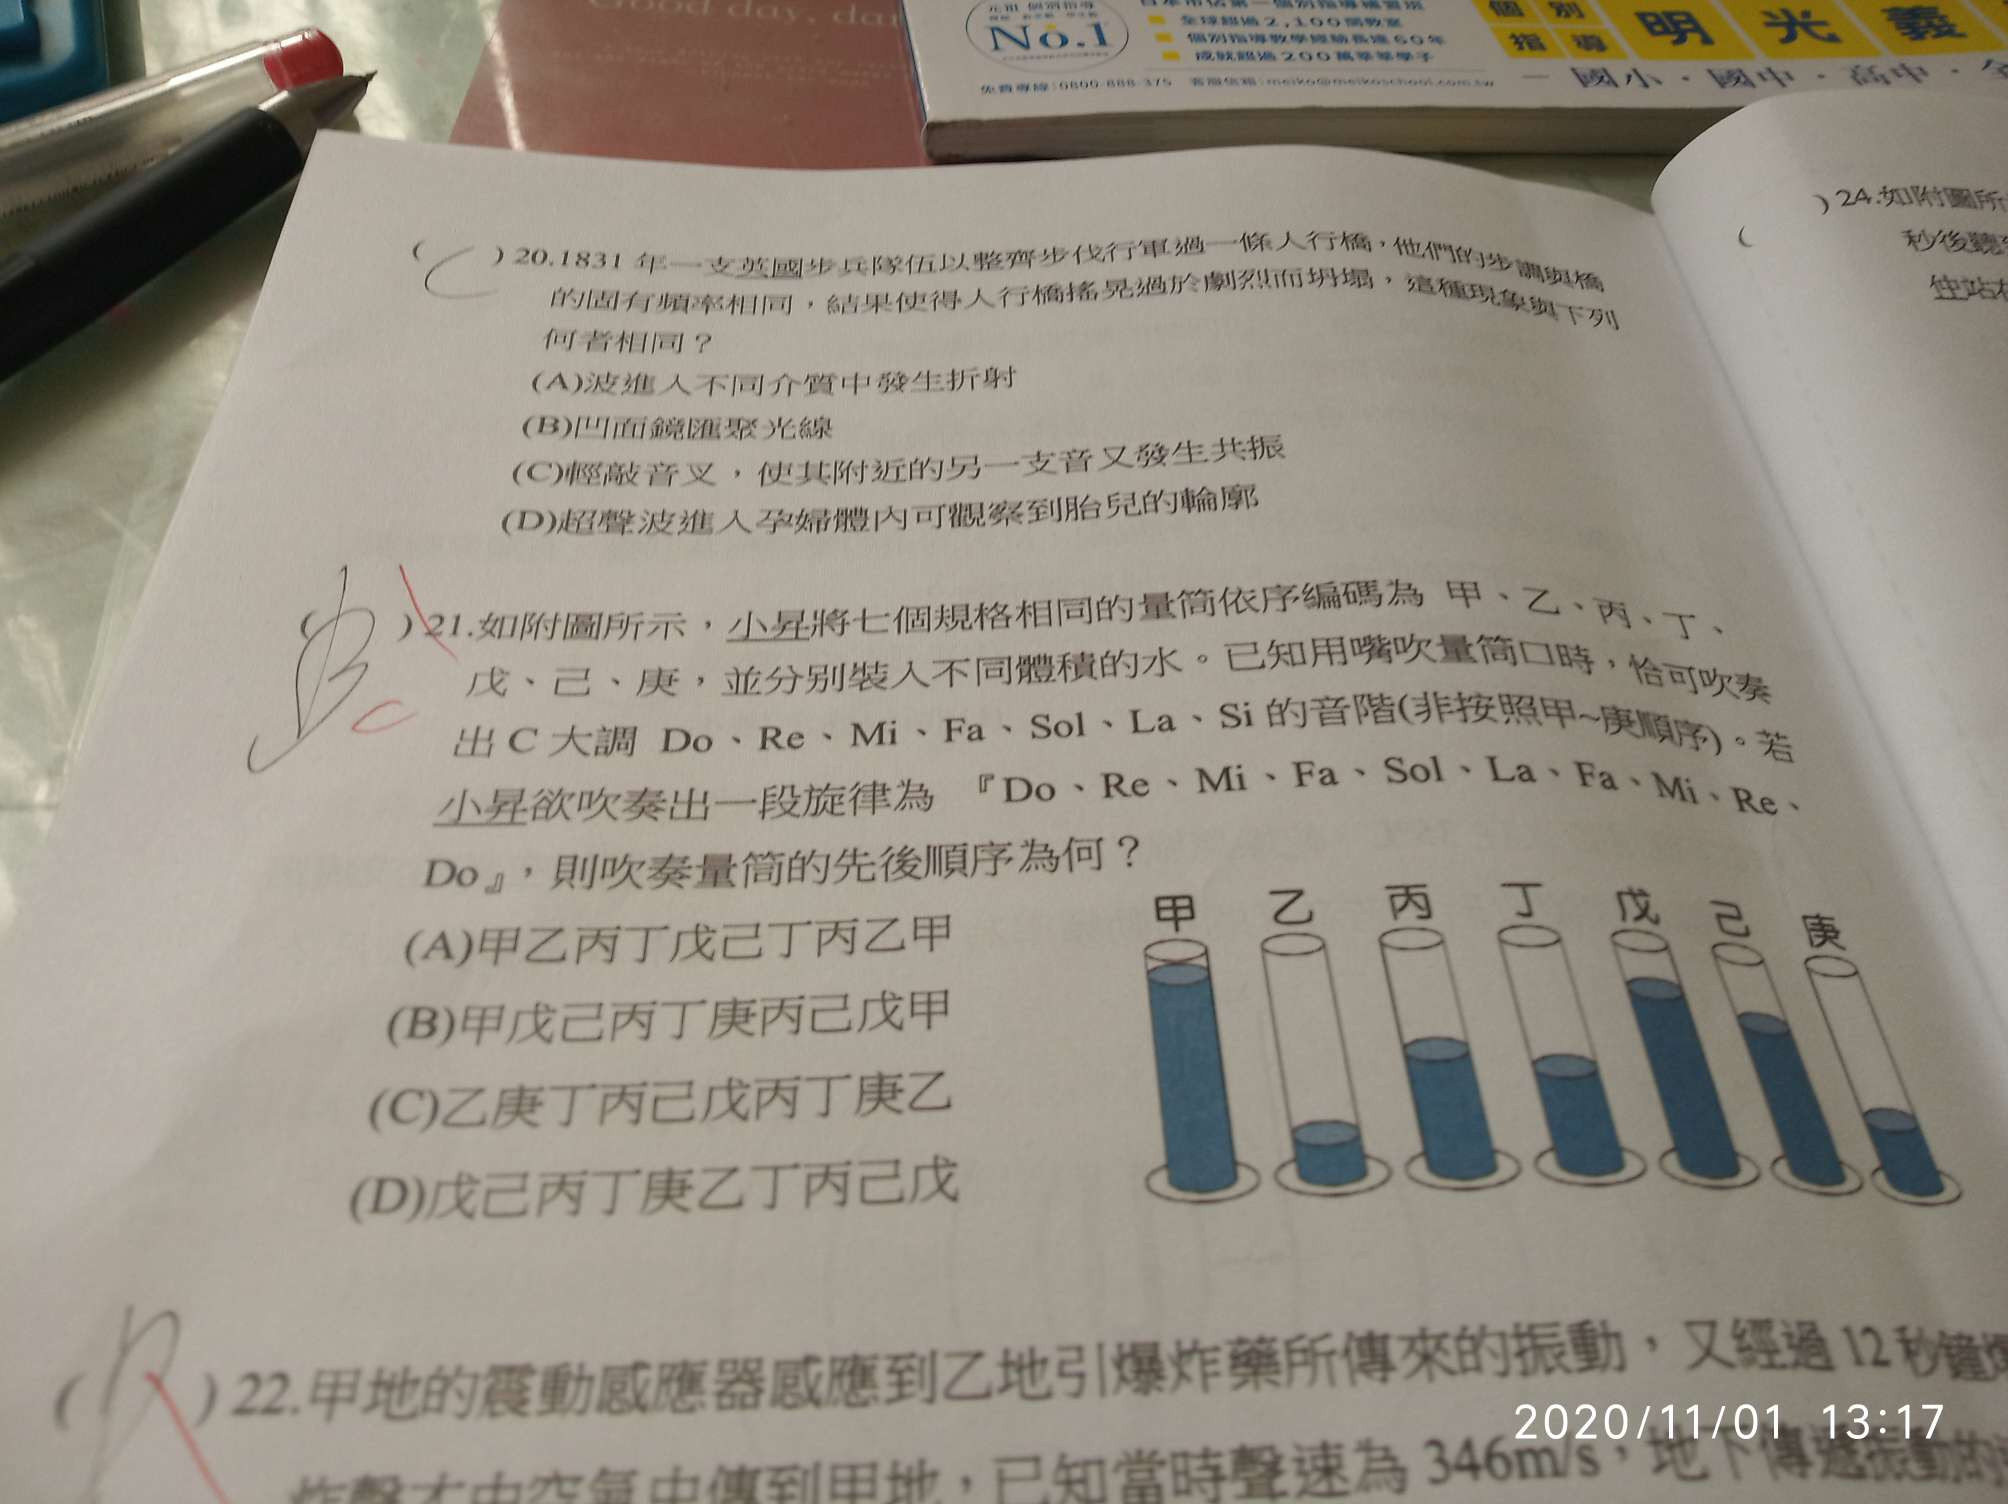 Good day, dar
No.1
日本市佔第一個別指導補習班
全球超過2,100間教室
個別指導教學經驗長達60年
成就超過200萬莘莘學子
個別指導
明光義
免費專線:0800-888-375 客服信箱:meiko@meikoschool.com.tw
一國小·國中·高中·全
( C )20.1831 年一支英國步兵隊伍以整齊步伐行軍過一條人行橋,他們的步調與橋
的固有頻率相同,結果使得人行橋搖晃過於劇烈而坍塌,這種現象與下列
何者相同?
(A)波進入不同介質中發生折射
(B)凹面鏡匯聚光線
(C)輕敲音叉,使其附近的另一支音叉發生共振
(D)超聲波進入孕婦體內可觀察到胎兒的輪廓
( B )21.如附圖所示,小昇將七個規格相同的量筒依序編碼為 甲、乙、丙、丁、
C
戊、己、庚,並分別裝入不同體積的水。已知用嘴吹量筒口時,恰可吹奏
出 C 大調 Do、Re、Mi、Fa、Sol、La、Si 的音階(非按照甲~庚順序)。若
小昇欲吹奏出一段旋律為『Do、Re、Mi、Fa、Sol、La、Fa、Mi、Re、
Do』,則吹奏量筒的先後順序為何?
(A)甲乙丙丁戊己丁丙乙甲
(B)甲戊己丙丁庚丙己戊甲
(C)乙庚丁丙己戊丙丁庚乙
(D)戊己丙丁庚乙丁丙己戊
甲 乙 丙 丁 戊 己 庚
( )22.甲地的震動感應器感應到乙地引爆炸藥所傳來的振動,又經過 12 秒鐘爆
炸聲才由空氣中傳到甲地,已知當時聲速為 346m/s,地下傳遞振動的
( )24.如附圖所
秒後聽
仕站在
2020/11/01 13:17